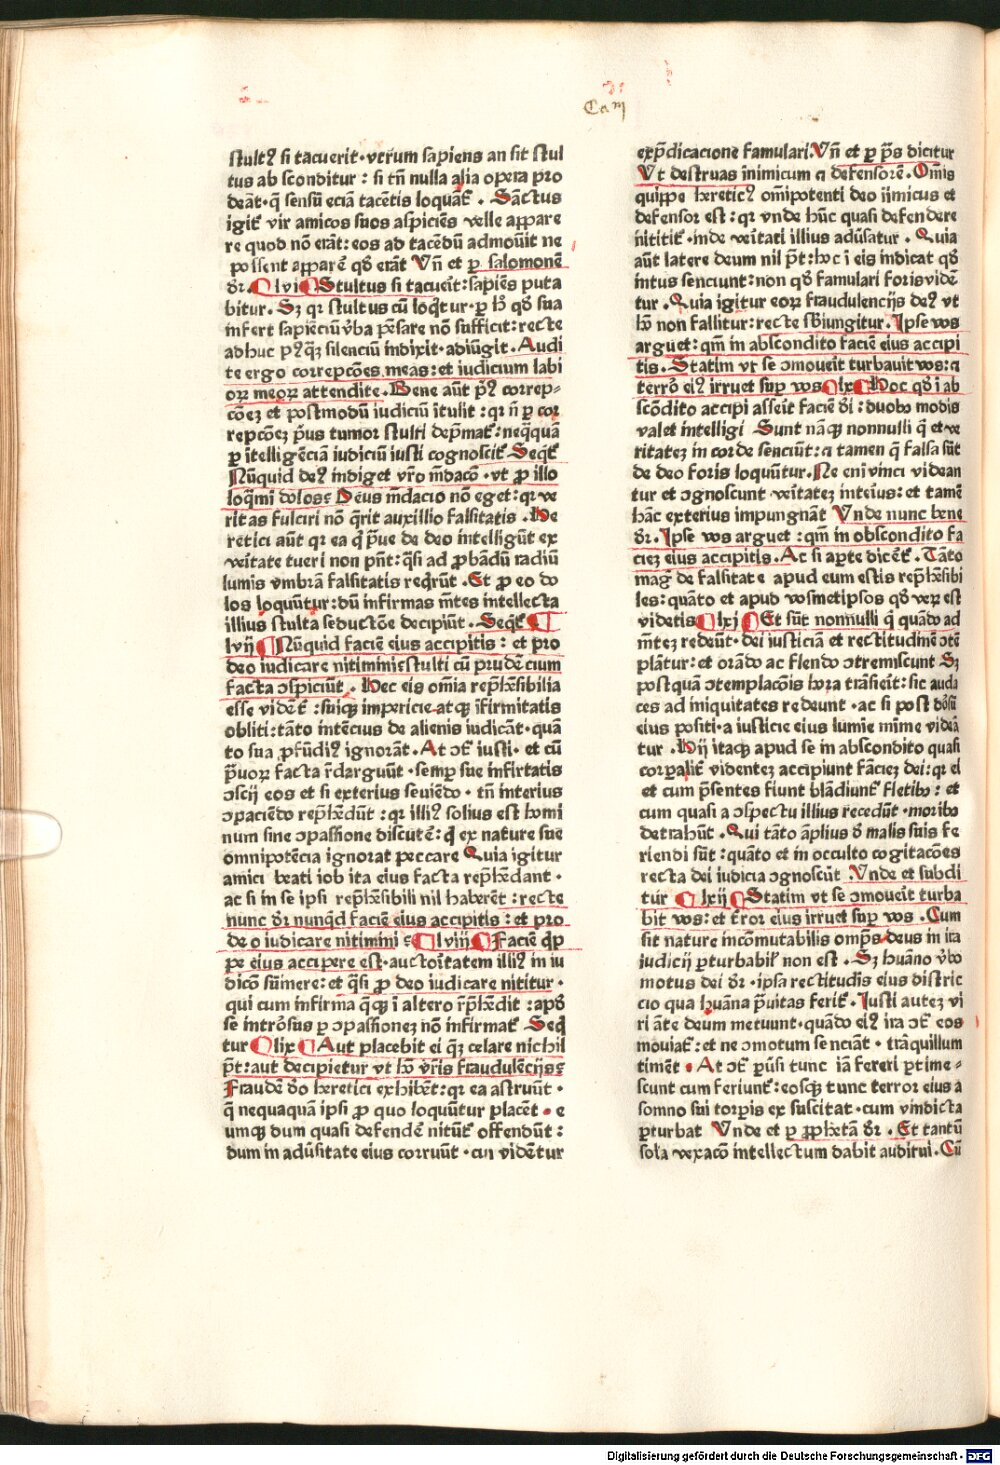 Cam
stultꝰ si tacuerit·vtrum sapiens an sit stul
tus ab sconditur : si tñ nulla alia opera pro
deāt·q̄ sensū eciā tacētis loquāt̄ . Sāctus
igit̄ vir amicos suos aspiciēs velle appare
re quod nō erāt:eos ad tacēdū admouit ne
possent apparē qđ erāt Vñ et ꝑ salomonē
dr̄. lvi Stultus si tacueit:sapiēs puta
bitur. Sꝫ qꝛ stultus cū loq̄tur·ꝑ hͦ qđ sua
infert sapieciū v̄ba pēsare nō sufficit:recte
adhuc pꝰqꝫ silenciū indixit·adiūgit. Audi
te ergo correpcōes meas:et iudicium labi
oꝝ meoꝝ attendite. Bene aūt pꝰ correp-
cōeꝫ et postmodū iudiciū itulit:qꝛ ñ ꝑ cor
repcōeꝫ pͥus tumor stulti dep̄mat̄:neq̄quā
ꝑ ītelligēciā iudiciū iusti cognoscit̄ Seqt̄
Nūquid deꝰ indiget vr̄o mdacō·vt ꝓ illo
loqͣmī dolos Deus mdacio nō eget:qꝛ ve
ritas fulciri nō q̄rit auxillio falsitatis .He
retici aūt qꝛ ea q̄ pͣue de deo intelligūt ex
veitate tueri non pn̄t:qͣsi ad ꝓbādū radiū
lumis vmbrā falsitatis reqͥrūt .Et ꝓ eo do
los loquūtur:dū infirmas mtes intellecta
illius stulta seductōe decipiūt. Seqt̄
lvij Nūquid faciē eius accipitis: et pro
deo iudicare nitimini stulti cū prudē cium
facta ↄspiciūt . Hec eis om̄ia rep̄hēsibilia
esse vident̄ :suiqꝫ impericie atqꝫ īfirmitatis
obliti:tāto intēcius de alienis iudicāt·quā
to sua ꝓfūdiꝰ ignorāt. At ↄͣ iusti· et cū
pͣuoꝝ facta r̄darguūt·semꝑ sue infirtatis
ↄscij eos et si exterius seuiēdo· tñ interius
ↄpaciēdo rep̄hēdūt :qꝛ illiꝰ solius est homi
num sine ↄpassione discutē: q̄ ex nature sue
omnipotēcia ignorat peccare Quia igitur
amici beati iob ita eius facta rep̄hēdant·
ac si in se ipsi rep̄hēsibili nil haberēt :recte
nunc dr̄ nunqͥd faciē eius accipitis: et pro
de o iudicare nitimini lviij Faciē q̄p
pe eius accipere est·auctoitatem illiꝰ in iu
dicō sūmere: et qͣsi ꝓ deo iudicare nititur·
qui cum infirma q̄qꝫ ī altero r̄p̄hēdit :apđ
se intrōsus ꝑ ↄpassioneꝫ nō infirmat̄ Seq̄
tur lix Aut placebit ei qꝫ celare nichil
pt̄:aut decipietur vt hō vr̄is fraudulēcijs
Fraudē dͦo heretici exhibēt:qꝛ ea astruūt·
q̄ nequaquā ipsi ꝓ quo loquūtur placēt · e
umqꝫ dum quasi defendē nitūt̄ offendūt:
dum in adūsitate eius corruūt·cui vidētur
exp̄dicacione famulari.Vñ et ꝑ pͣs dicitur
Vt destruas inimicum a defensorē. Om̄is
quippe hereticꝰ om̄ipotenti deo īimicus et
defensor est:qꝛ vnde hūc quasi defendere
nititit̄·inde veitati illius adūsatur . Quia
aūt latere deum nil pt̄:hoc ī eis indicat qđ
intus senciunt:non qđ famulari foris vidē
tur .Quia igitur eoꝝ fraudulencijs deꝰ vt
hō non fallitur:recte sbiungitur. Ipse vos
arguet: qm̄ in abscondito faciē eius accipi
tis. Statim vt se ↄmoueit turbauit vos:a
terrō eiꝰ irruet suꝑ vos lx Hoc qđ ī ab
scōdito accipi asseit faciē di :duobo modis
valet intelligi Sunt nāqꝫ nonnulli q̄ et ve
ritateꝫ in corde senciūt:a tamen q̄ falsa sūt
de deo foris loquūtur. Ne enī vinci videan
tur et ↄgnoscunt veitateꝫ inteiūs:et tamē
hāc exterius impungnāt Vnde nunc bene
dr̄. Ipse vos arguet :qm̄ in obscondito fa
cieꝫ eius accipitis. Ac si aꝑte dicēt̄. Tāto
magͥ de falsitate apud eum estis rep̄hēsibi
les:quāto et apud vosmetipsos qđ veꝝ est
videtis lxj Et sūt nonnulli q̄ quādo ad
mteꝫ redeūt·dei iusticiā et rectitudinē ↄtē
plātur:et orādo ac flendo ↄtremiscunt Sꝫ
postquā ↄtemplacōis hora trāsieit:sic auda
ces ad iniquitates redeunt·ac si post dōsū
eius positi·a iusticie eius lumie mīme videā
tur .Hij itaqꝫ apud se in abscondito quasi
corꝑalit̄ videnteꝫ accipiunt fācieꝫ dei:qꝛ ei
et cum p̄sentes fiunt blādiunt̄ fletibo: et
cum quasi a ↄspectu illius recedūt·moribo
detrahūt .Qui tāto āplius đ malis suis fe
riendi sūt:quāto et in occulto cogitacōes
recta dei iudicia ↄgnoscūt .Vnde et subdi
tur lxij Statim vt se ↄmoueit turba
bit vos:et t̄ror eius irruet suꝑ vos .Cum
sit nature incōmutabilis omp̄s deus in ira
iudicij ꝑturbabil̄ non est .Sꝫ huāno v̄bo
motus dei dr̄·ipsa rectitudīs eius distric
cio qua huāna pͣuitas ferit̄. Iusti auteꝫ vi
ri āte deum metuunt·quādo eiꝰ ira ↄͣ eos
mouiat̄:et ne ↄmotum senciāt·trāquillum
timēt · At ↄͣ pͣusi tunc iā fereri ꝑtime-
scunt cum feriunt̄:eosqꝫ tunc terror eius a
somno sui torpis ex suscitat·cum vindicta
ꝑturbat Vnde et ꝑ ꝓphetā dr̄ . Et tantū
sola vexacō intellectum dabit auditui.Cū
Digitalisierung gefördert durch die Deutsche Forschungsgemeinschaft - DFG